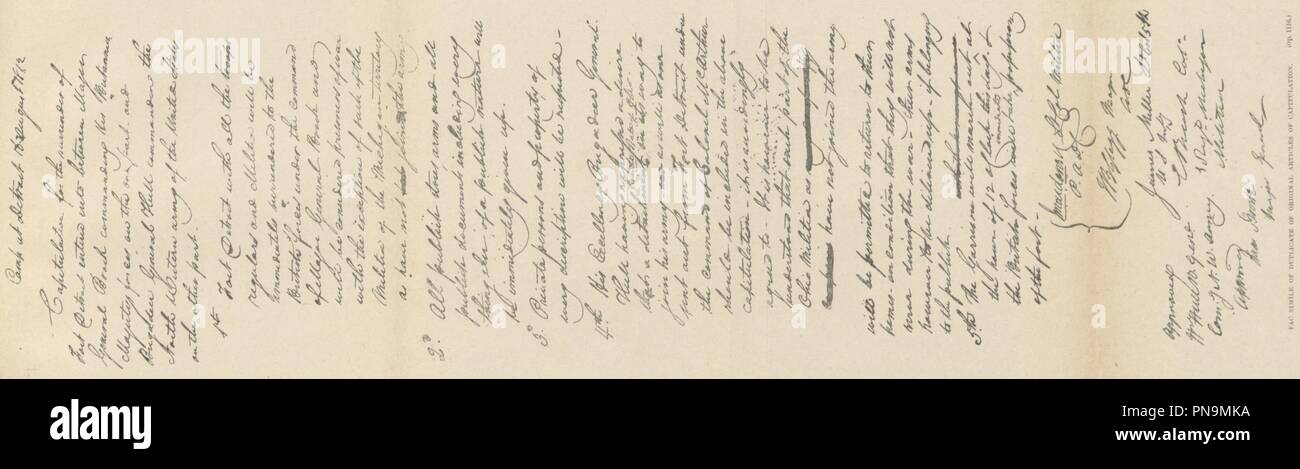 Camp at Detroit 16 August 1812
Capitulation for the surrender of
Fort Detroit entered into between Major
General Brock commanding His Britannic
Majesty's forces on the one part and
Brigadier General Hull commanding the
North Western army of the United States
on the other part.
1st Fort Detroit with all the troops
regulars and Militia will be
immediately surrendered to the
British forces under the command
of Major General Brock and
will be considered prisoners of war
with the exception of such of the
Militia of the Michigan territory
as have not joined the army.
2d All public stores arms and all
public documents including every
thing else of a public nature will
be immediately given up.
3d Private persons and property of
every description will be respected
4th His Excellency Brigadier General
Hull having expressed a desire
that a detachment
join his army as well as one
sent out from Fort Detroit under
the command of Colonel McArthur
should be included in the above
capitulation it is accordingly
agreed to. It is however to be
understood that such part of the
Ohio Militia as
have not joined the army
will be permitted to return to their
homes on condition that they will not
serve during the war. Their arms
however to be delivered up if belonging
to the public
5th The Garrison will march out at
the hour of 12 o'clock this day &
the British forces will take possession
of the fort.
J. Macdonell Lt Col Militia
P. A. D. C.
J B Glegg Major
A D C
James Miller Lt Col 5th
U. S. Infy
E Brush Col
1 Regt Michigan
Militia
approved
W Hull B. Genl
Comg N. W. Army
approved
Isaac Brock
Major General
FAC SIMILE OF DUPLICATE OF ORIGINAL ARTICLES OF CAPITULATION.
alamy
alamy
Image ID: PN9MKA
www.alamy.com